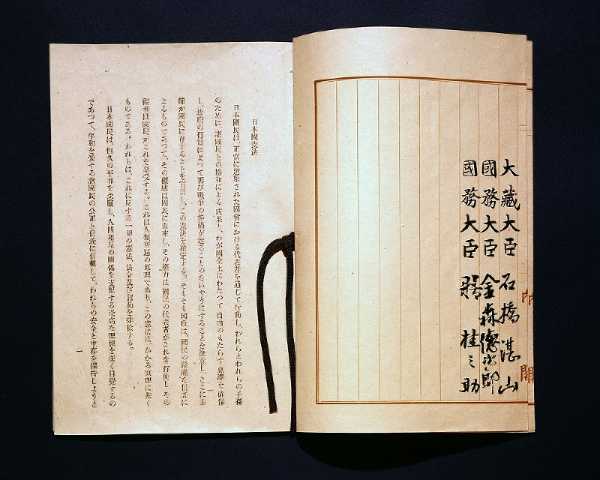 内閣
大藏大臣 石橋湛山
國務大臣 金森德次郎
國務大臣 膳桂之助
日本國憲法
日本國民は、正當に選擧された國會における代表者を通じて行動し、われらとわれらの子孫
のために、諸國民との協和による成果と、わが國全土にわたつて自由のもたらす惠澤を確保
し、政府の行爲によつて再び戰爭の慘禍が起ることのないやうにすることを決意し、ここに主
權が國民に存することを宣言し、この憲法を確定する。そもそも國政は、國民の嚴肅な信託に
よるものであつて、その權威は國民に由來し、その權力は國民の代表者がこれを行使し、その
福利は國民がこれを享受する。これは人類普遍の原理であり、この憲法は、かかる原理に基く
ものである。われらは、これに反する一切の憲法、法令及び詔敕を排除する。
日本國民は、恆久の平和を念願し、人間相互の關係を支配する崇高な理想を深く自覺するの
であつて、平和を愛する諸國民の公正と信義に信賴して、われらの安全と生存を保持しようと
一